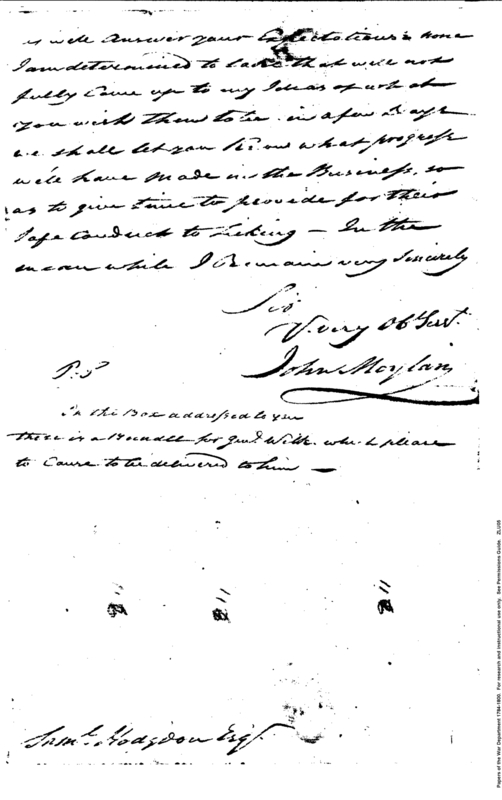 as will Answer your Expectations, none
I am determined to take that will not
fully Come up to my Ideas of what
you wish them to be. in a few Days
we shall let you Know what progress
we'll have made in the Business, so
as to give time to provide for their
safe Conduct to — In the
mean while I Remain very Sincerely
Sir
Y. very Ob. Servt.
John Moylan
P.S
In the Box addressed to you
there is a Bundle for Genl. Wilk. which please
to Cause to be delivered to him —
Saml. Hodgdon Esqr.
Papers of the War Department 1784-1800. For research and instructional use only. See Permissions Guide. ZLU06